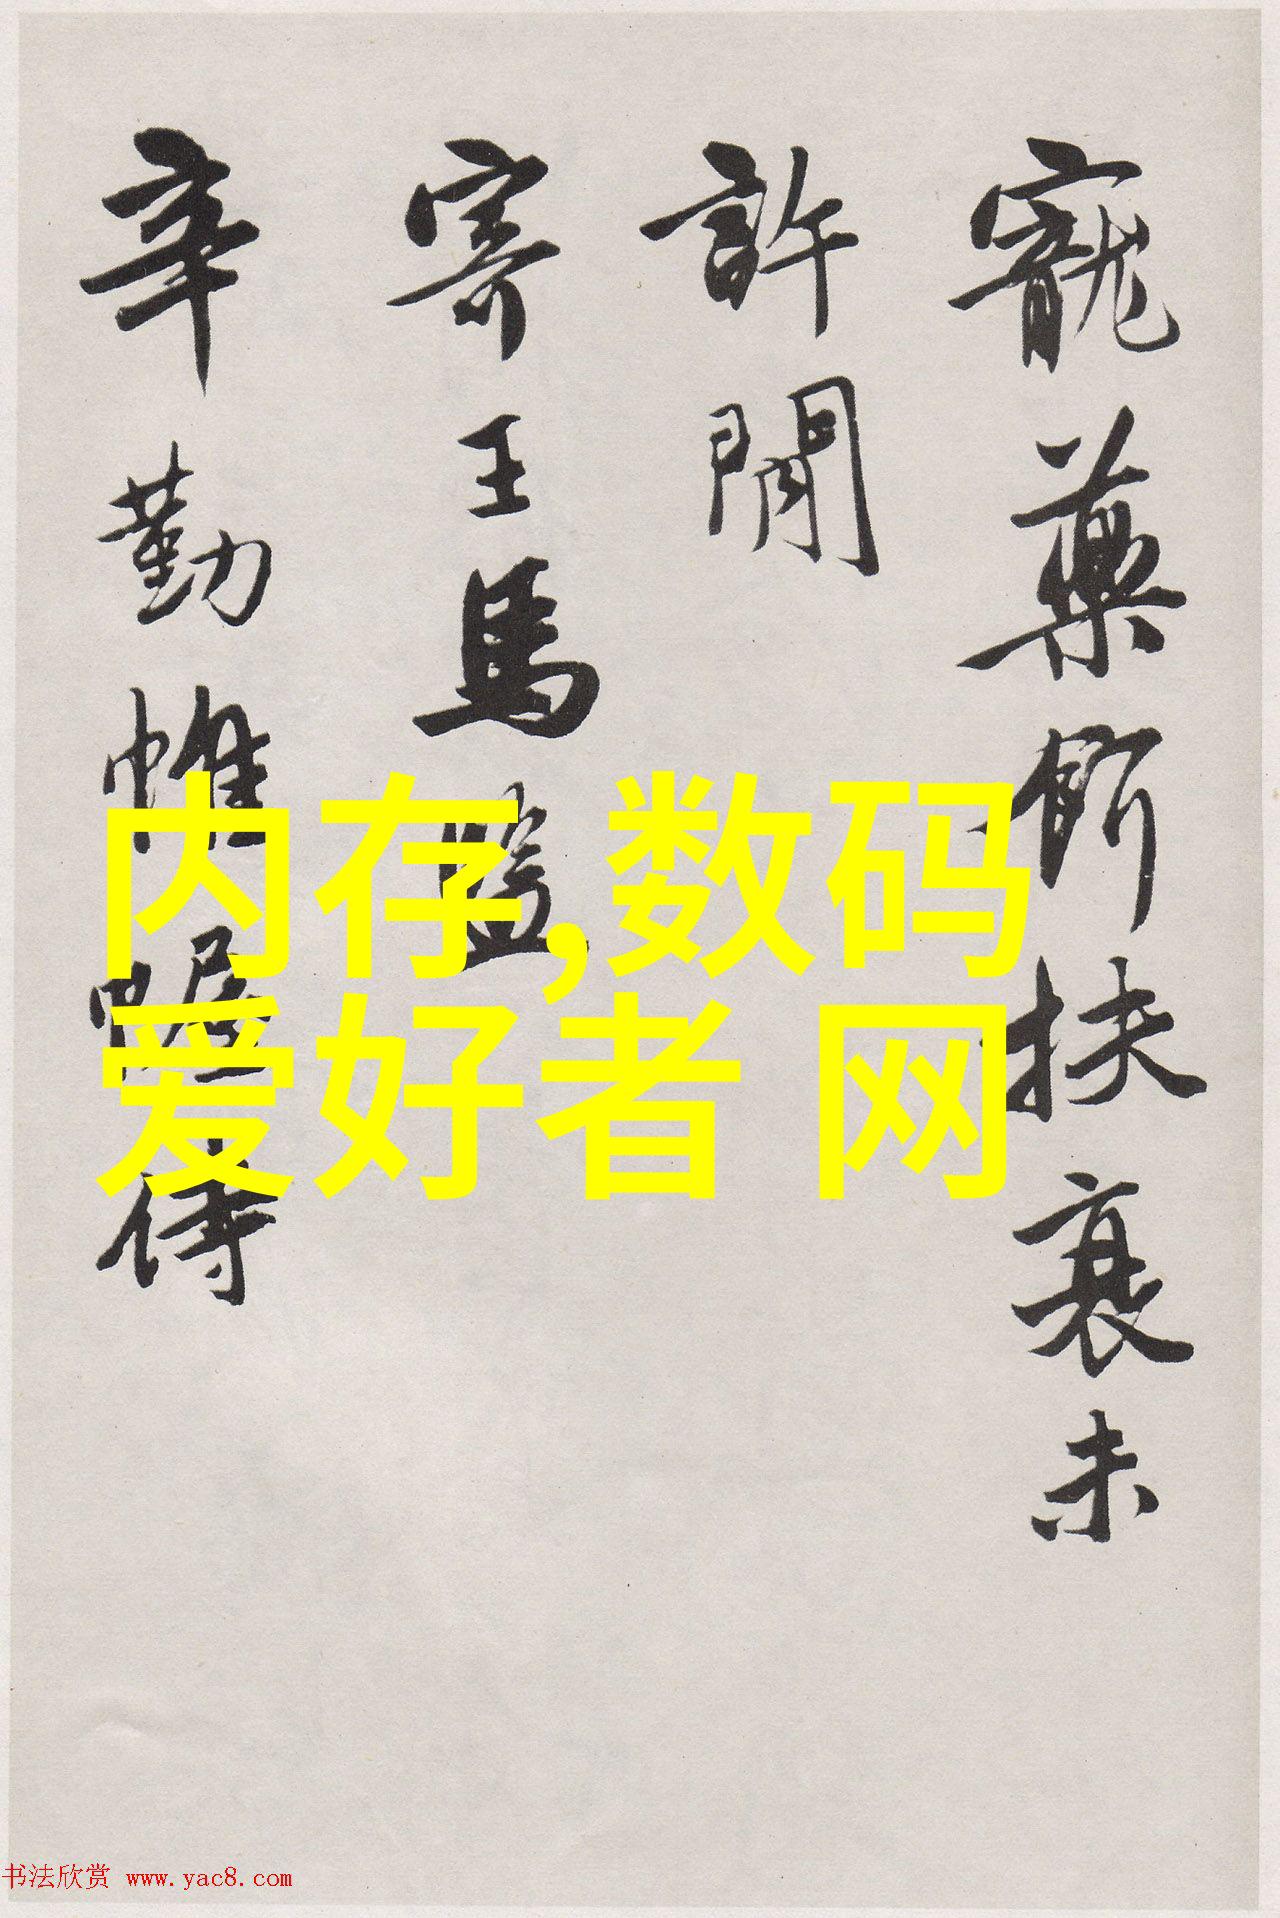 寵藥餌扶衰未
許閒
寄王馬監
辛勤帷幄侍
内存,数码
爱好者 网
书法欣赏 www.yac8.com